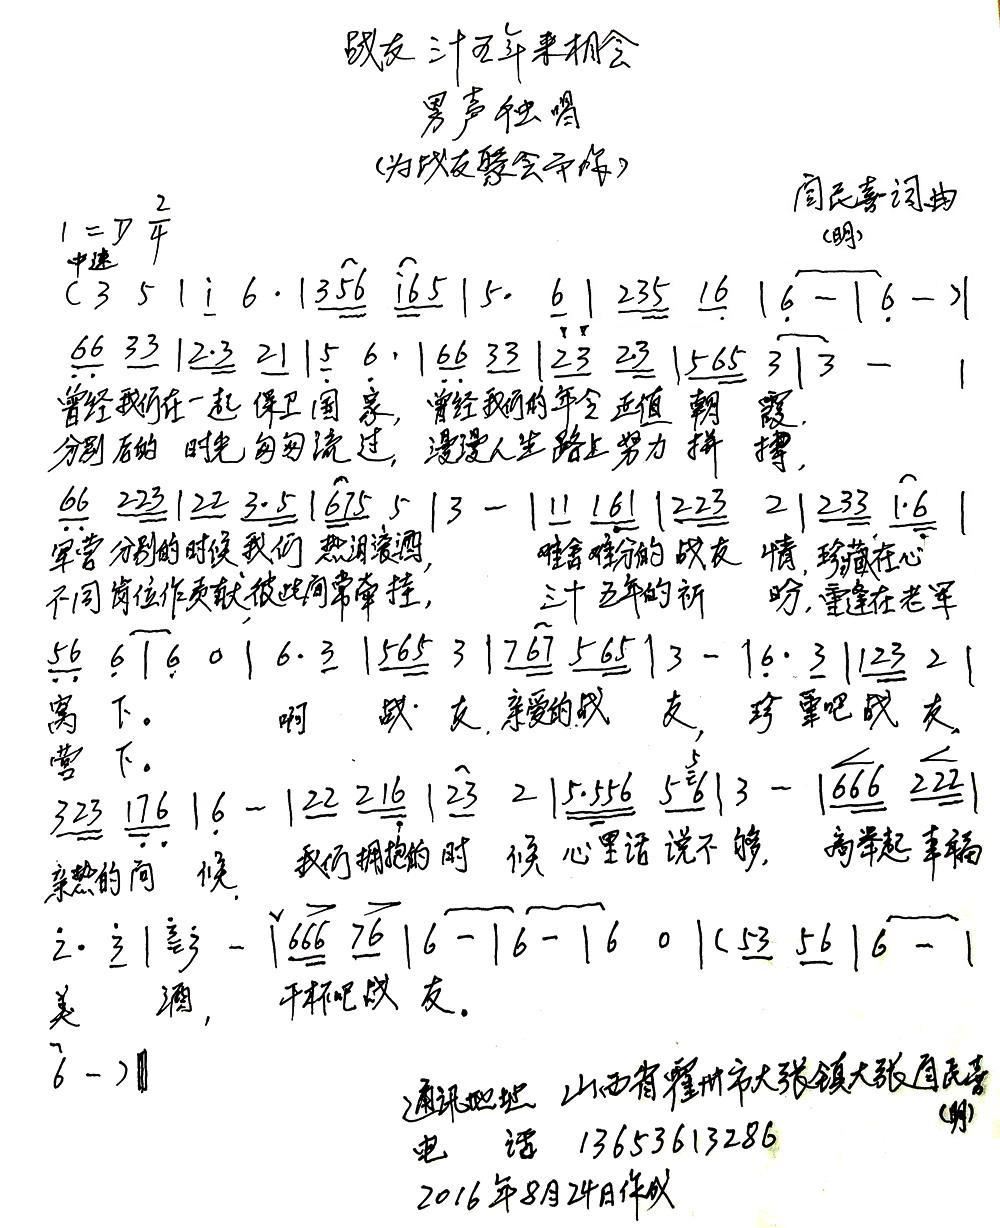 战友三十五年来相会
男声独唱
(为战友聚会而作)
闫民喜词曲
(明)
1=D 2/4
中速
(3 5 | i 6· | 356 i65 | 5· 6 | 235 16 | 6 - | 6 - ) |
66 33 | 2·3 21 | 5 6· | 66 33 | 23 2·3 | 565 3 | 3 - |
曾经我们在一起保卫国家, 曾经我们的年令正值朝霞.
分别后的时光匆匆流过, 漫漫人生路上努力拼搏,
66 223 | 22 3·5 | 675 5 | 3 - | 11 161 | 223 2 | 233 1·6 |
军营分别的时候我们热泪滚洒, 难舍难分的战友情,珍藏在心
不同岗位作贡献,彼此间常牵挂, 三十五年的祈盼,重逢在老军
56 6 | 6 0 | 6·3 | 565 3 | 767 565 | 3 - | 6·3 | 123 2 |
窝下。 啊战友.亲爱的战友, 珍重吧战友、
营下。
323 176 | 6 - | 22 216 | 23 2 | 5·556 5 5 6 | 3 - | 666 222 |
亲热的问候, 我们拥抱的时候心里话说不够, 高举起幸福
2· 3 | 3 - | 666 76 | 6 - | 6 - | 6 0 | (53 56 | 6 - |
美酒, 干杯吧战友。
6 - )‖
通讯地址 山西省霍州市大张镇大张闫民喜
(明)
电话 13653613286
2016年8月24日作成